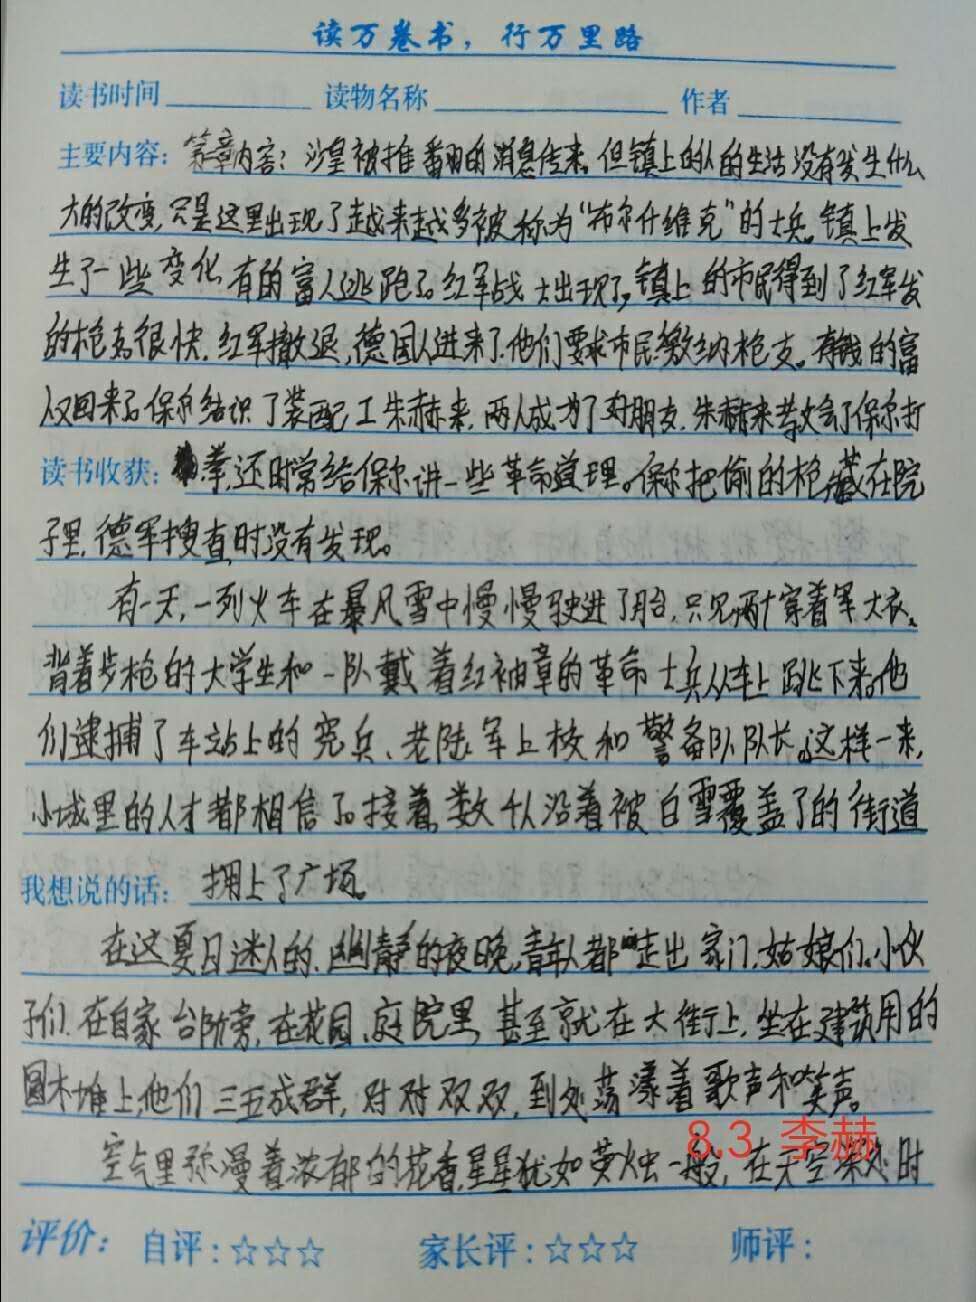 读万卷书，行万里路
读书时间 读物名称 作者
主要内容：第二章内容：沙皇被推翻的消息传来，但镇上的人的生活没有发生什么
大的改变，只是这里出现了越来越多被称为“布尔什维克”的士兵。镇上发
生了一些变化，有的富人逃跑了。红军战士出现了，镇上的市民得到了红军发
的枪支。很快，红军撤退，德国人进来了，他们要求市民缴纳枪支。有钱的富
人又回来了。保尔结识了装配工朱赫来，两人成为了好朋友，朱赫来教会了保尔打
读书收获：拳，还时常给保尔讲一些革命道理。保尔把偷的枪藏在院
子里，德军搜查时没有发现。
有一天，一列火车在暴风雪中慢慢驶进了月台，只见两个穿着军大衣、
背着步枪的大学生和一队戴着红袖章的革命士兵从车上跳下来。他
们逮捕了车站上的宪兵、老陆军上校和警备队队长。这样一来，
小城里的人才都相信了。接着，数千人沿着被白雪覆盖了的街道
我想说的话：拥上了广场。
在这夏日迷人的、幽静的夜晚，青年人都走出家门，姑娘们、小伙
子们，在自家台阶旁，在花园、庭院里，甚至就在大街上，坐在建筑用的
圆木堆上，他们三五成群，对对双双，到处荡漾着歌声和笑声。
8.3 李赫
空气里弥漫着浓郁的花香，星星犹如萤烛一般，在天空深处时
评价：自评：☆☆☆ 家长评：☆☆☆ 师评：